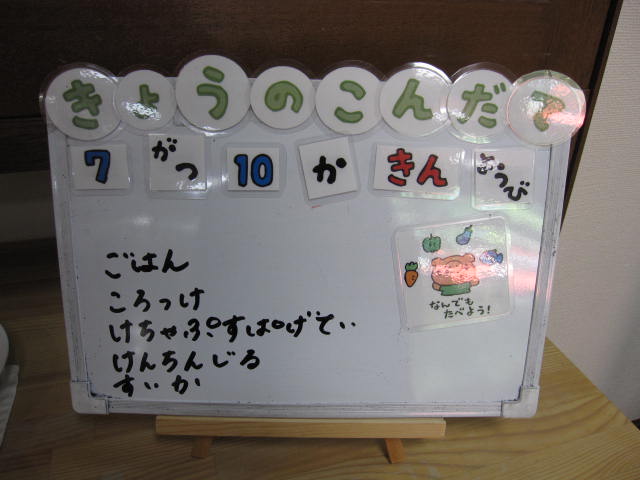 きょうのこんだて
7 がつ 10 か きん ようび
ごはん
ころっけ
けちゃぷすぱげてぃ
けんちんじる
すいか
なんでも
たべよう!